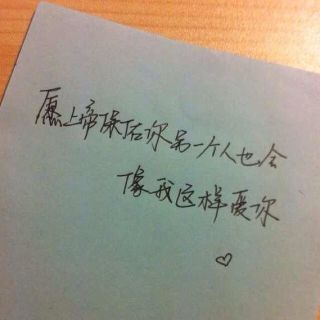 愿上帝保佑你另一个人也会
像我这样爱你
♡